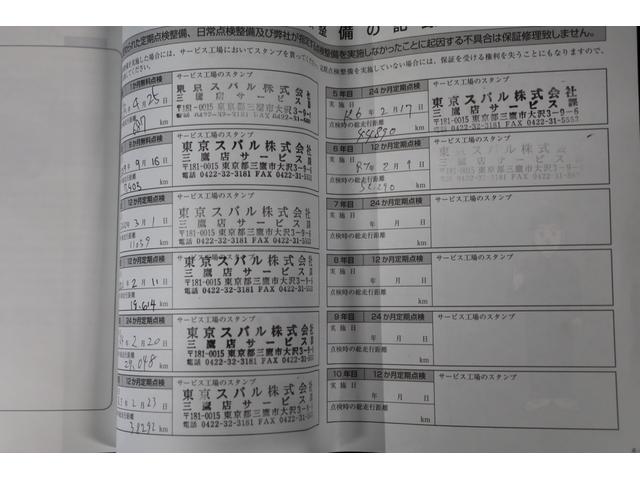 整備の記
定期点検整備、日常点検整備及び弊社が指定する点検整備を実施しなかったことに起因する不具合は保証修理致しません。
実施した場合には、サービス工場においてスタンプを貰ってください。
定期点検整備を実施していない場合には、保証を受ける権利を失うこともありますので、
1か月無料点検
サービス工場のスタンプ
4月25日
687 km
東京スバル株式会社
三鷹店サービス課
〒181-0015 東京都三鷹市大沢3-9-6
電話 0422-32-3181 FAX 0422-31-5553
6か月無料点検
サービス工場のスタンプ
9月16日
km
東京スバル株式会社
三鷹店サービス課
〒181-0015 東京都三鷹市大沢3-9-6
電話 0422-32-3181 FAX 0422-31-5553
12か月定期点検
サービス工場のスタンプ
3月1日
11059 km
東京スバル株式会社
三鷹店サービス課
〒181-0015 東京都三鷹市大沢3-9-6
電話 0422-32-3181 FAX 0422-31-5553
12か月定期点検
サービス工場のスタンプ
2月11日
19,614 km
東京スバル株式会社
三鷹店サービス課
〒181-0015 東京都三鷹市大沢3-9-6
電話 0422-32-3181 FAX 0422-31-5553
24か月定期点検
サービス工場のスタンプ
2月20日
29,048 km
東京スバル株式会社
三鷹店サービス課
〒181-0015 東京都三鷹市大沢3-9-6
電話 0422-32-3181 FAX 0422-31-5553
12か月定期点検
サービス工場のスタンプ
2月23日
38292 km
東京スバル株式会社
三鷹店サービス課
〒181-0015 東京都三鷹市大沢3-9-6
電話 0422-32-3181 FAX 0422-31-5553
5年目 24か月定期点検
サービス工場のスタンプ
実施日 R6年2月17日
点検時の総走行距離
44,890 km
東京スバル株式会社
三鷹店サービス課
〒181-0015 東京都三鷹市大沢3-9-6
電話 0422-32-3181 FAX 0422-31-5553
6年目 12か月定期点検
サービス工場のスタンプ
実施日 R7年2月9日
点検時の総走行距離
km
東京スバル株式会社
三鷹店サービス課
7年目 24か月定期点検
サービス工場のスタンプ
実施日 年 月 日
点検時の総走行距離
km
8年目 12か月定期点検
サービス工場のスタンプ
実施日 年 月 日
点検時の総走行距離
km
9年目 24か月定期点検
サービス工場のスタンプ
実施日 年 月 日
点検時の総走行距離
km
10年目 12か月定期点検
サービス工場のスタンプ
実施日 年 月 日
点検時の総走行距離
km